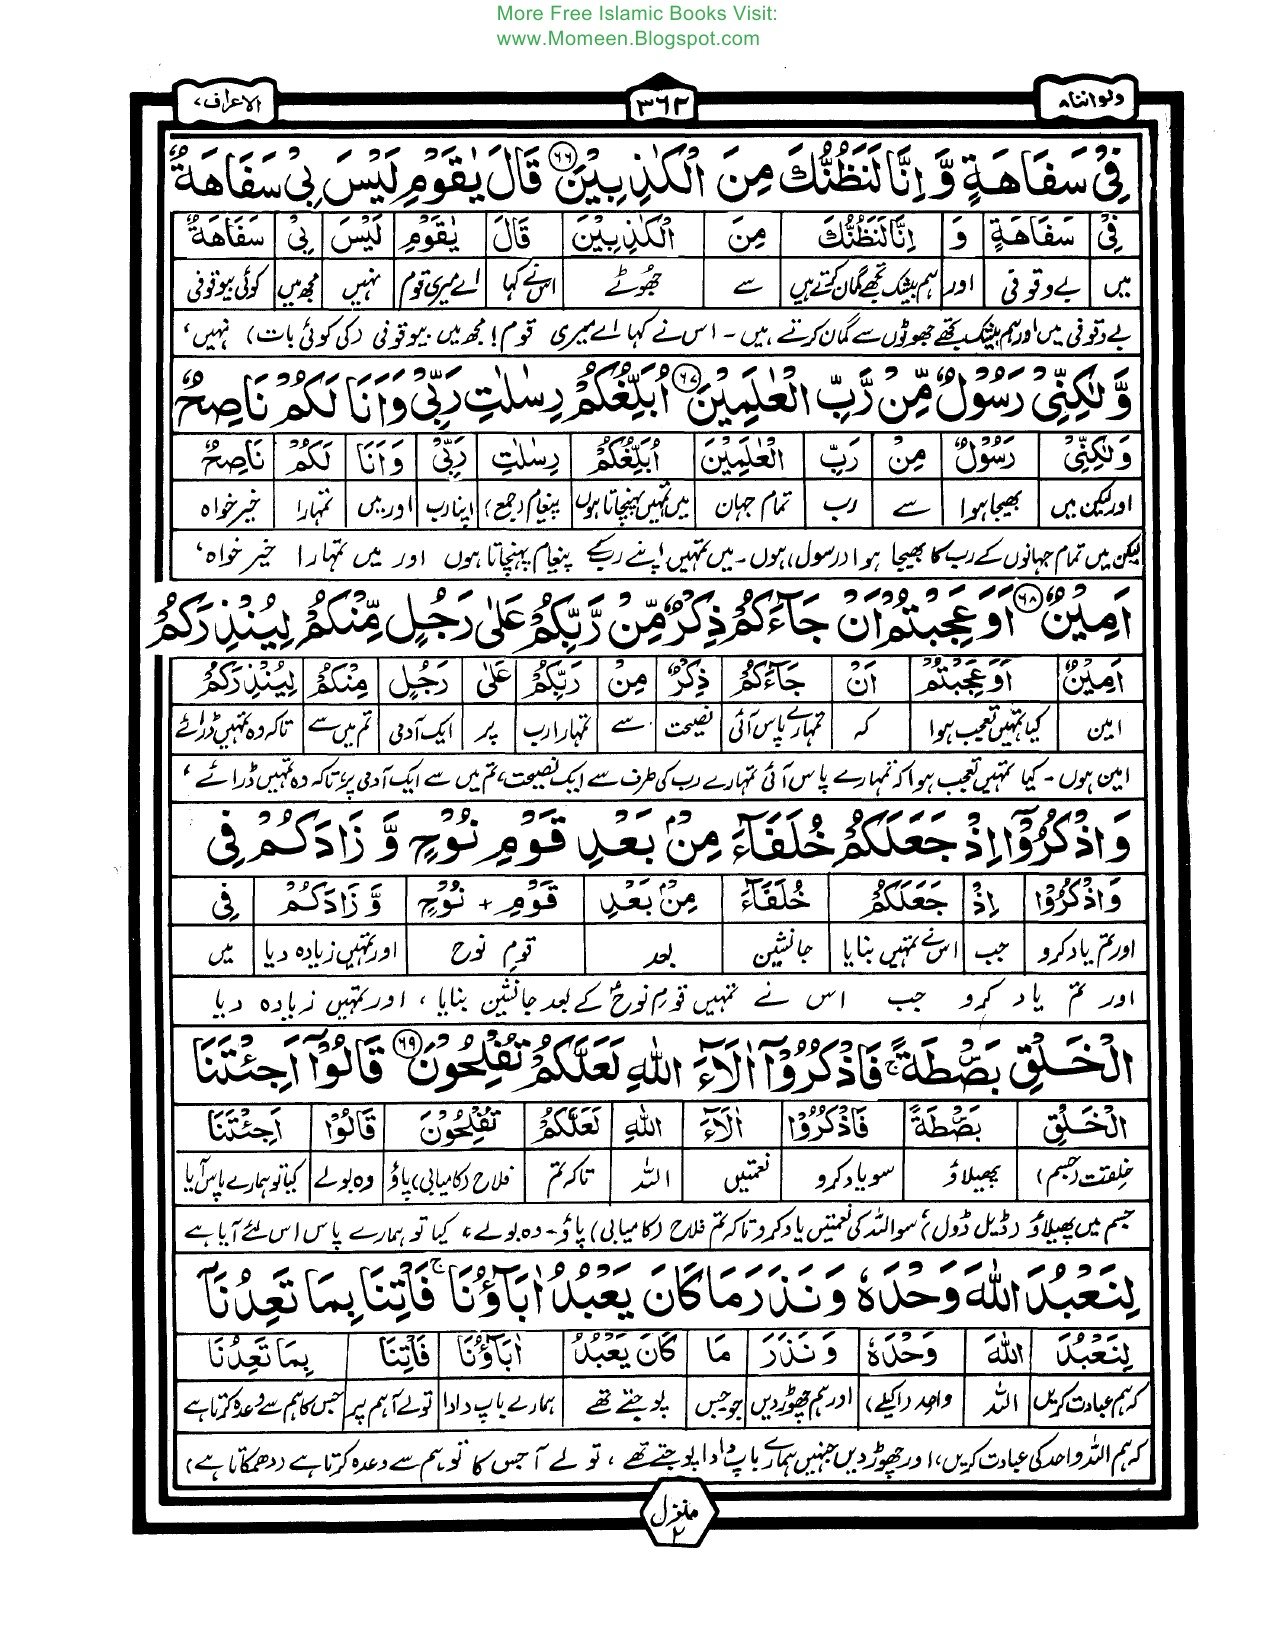 More Free Islamic Books Visit:
www.Momeen.Blogspot.com
ولواننا ۸
۳۶۲
الاعراف ۷
فِیْ سَفَاهَةٍ وَّ اِنَّا لَنَظُنُّكَ مِنَ الْكٰذِبِیْنَ ۶۶ قَالَ یٰقَوْمِ لَیْسَ بِیْ سَفَاهَةٌ
فِیْ سَفَاهَةٍ وَ اِنَّا لَنَظُنُّكَ مِنَ الْكٰذِبِیْنَ قَالَ یٰقَوْمِ لَیْسَ بِیْ سَفَاهَةٌ
میں بے وقوفی اور ہم بیشک تجھے گمان کرتے ہیں سے جھوٹے اس نے کہا اے میری قوم نہیں مجھ میں کوئی بیوقوفی
بے وقوفی میں اور ہم بیشک تجھے جھوٹوں سے گمان کرتے ہیں۔ اس نے کہا اے میری قوم! مجھ میں بیوقوفی (کی کوئی بات) نہیں،
وَّ لٰكِنِّیْ رَسُوْلٌ مِّنْ رَّبِّ الْعٰلَمِیْنَ ۶۷ اُبَلِّغُكُمْ رِسٰلٰتِ رَبِّیْ وَ اَنَا لَكُمْ نَاصِحٌ
وَلٰكِنِّیْ رَسُوْلٌ مِنْ رَبِّ الْعٰلَمِیْنَ اُبَلِّغُكُمْ رِسٰلٰتِ رَبِّیْ وَاَنَا لَكُمْ نَاصِحٌ
اور لیکن میں بھیجا ہوا سے رب تمام جہان میں تمہیں پہنچاتا ہوں پیغام (جمع) اپنا رب اور میں تمہارا خیر خواہ
لیکن میں تمام جہانوں کے رب کا بھیجا ہوا (رسول) ہوں۔ میں تمہیں اپنے رب کے پیغام پہنچاتا ہوں اور میں تمہارا خیر خواہ،
اَمِیْنٌ ۶۸ اَوَ عَجِبْتُمْ اَنْ جَآءَكُمْ ذِكْرٌ مِّنْ رَّبِّكُمْ عَلٰی رَجُلٍ مِّنْكُمْ لِیُنْذِرَكُمْ
اَمِیْنٌ اَوَعَجِبْتُمْ اَنْ جَآءَكُمْ ذِكْرٌ مِنْ رَبِّكُمْ عَلٰی رَجُلٍ مِنْكُمْ لِیُنْذِرَكُمْ
امین کیا تمہیں تعجب ہوا کہ تمہارے پاس آئی نصیحت سے تمہارا رب پر ایک آدمی تم میں سے تاکہ وہ تمہیں ڈرائے
امین ہوں۔ کیا تمہیں تعجب ہوا کہ تمہارے پاس آئی تمہارے رب کی طرف سے ایک نصیحت، تم میں سے ایک آدمی پر، تاکہ وہ تمہیں ڈرائے،
وَ اذْكُرُوْۤا اِذْ جَعَلَكُمْ خُلَفَآءَ مِنْۢ بَعْدِ قَوْمِ نُوْحٍ وَّ زَادَكُمْ فِی
وَاذْكُرُوْا اِذْ جَعَلَكُمْ خُلَفَآءَ مِنْۢ بَعْدِ قَوْمِ + نُوْحٍ وَّ زَادَكُمْ فِی
اور تم یاد کرو جب اس نے تمہیں بنایا جانشین بعد قوم نوح اور تمہیں زیادہ دیا میں
اور تم یاد کرو جب اس نے تمہیں قومِ نوحؑ کے بعد جانشین بنایا، اور تمہیں زیادہ دیا
الْخَلْقِ بَصْۜطَةً ۚ فَاذْكُرُوْۤا اٰلَآءَ اللّٰهِ لَعَلَّكُمْ تُفْلِحُوْنَ ۶۹ قَالُوْۤا اَجِئْتَنَا
الْخَلْقِ بَصْۜطَةً فَاذْكُرُوْا اٰلَآءَ اللّٰهِ لَعَلَّكُمْ تُفْلِحُوْنَ قَالُوْا اَجِئْتَنَا
خلقت (جسم) پھیلاؤ سو یاد کرو نعمتیں اللہ تاکہ تم فلاح (کامیابی) پاؤ وہ بولے کیا تو ہمارے پاس آیا
جسم میں پھیلاؤ (ڈیل ڈول) سو اللہ کی نعمتیں یاد کرو تاکہ تم فلاح (کامیابی) پاؤ۔ وہ بولے، کیا تو ہمارے پاس اس لئے آیا ہے
لِنَعْبُدَ اللّٰهَ وَحْدَهٗ وَ نَذَرَ مَا كَانَ یَعْبُدُ اٰبَآؤُنَا ۚ فَاْتِنَا بِمَا تَعِدُنَاۤ
لِنَعْبُدَ اللّٰهَ وَحْدَهٗ وَ نَذَرَ مَا كَانَ یَعْبُدُ اٰبَآؤُنَا فَاْتِنَا بِمَا تَعِدُنَا
کہ ہم عبادت کریں اللہ واحد (اکیلے) اور ہم چھوڑ دیں جو جس پوجتے تھے ہمارے باپ دادا تو لے آ ہم پر جس کا ہم سے وعدہ کرتا ہے
کہ ہم اللہ واحد کی عبادت کریں، اور چھوڑ دیں جنہیں ہمارے باپ دادا پوجتے تھے، تو لے آ جس کا تو ہم سے وعدہ کرتا ہے (دھمکاتا ہے)
منزل ۲